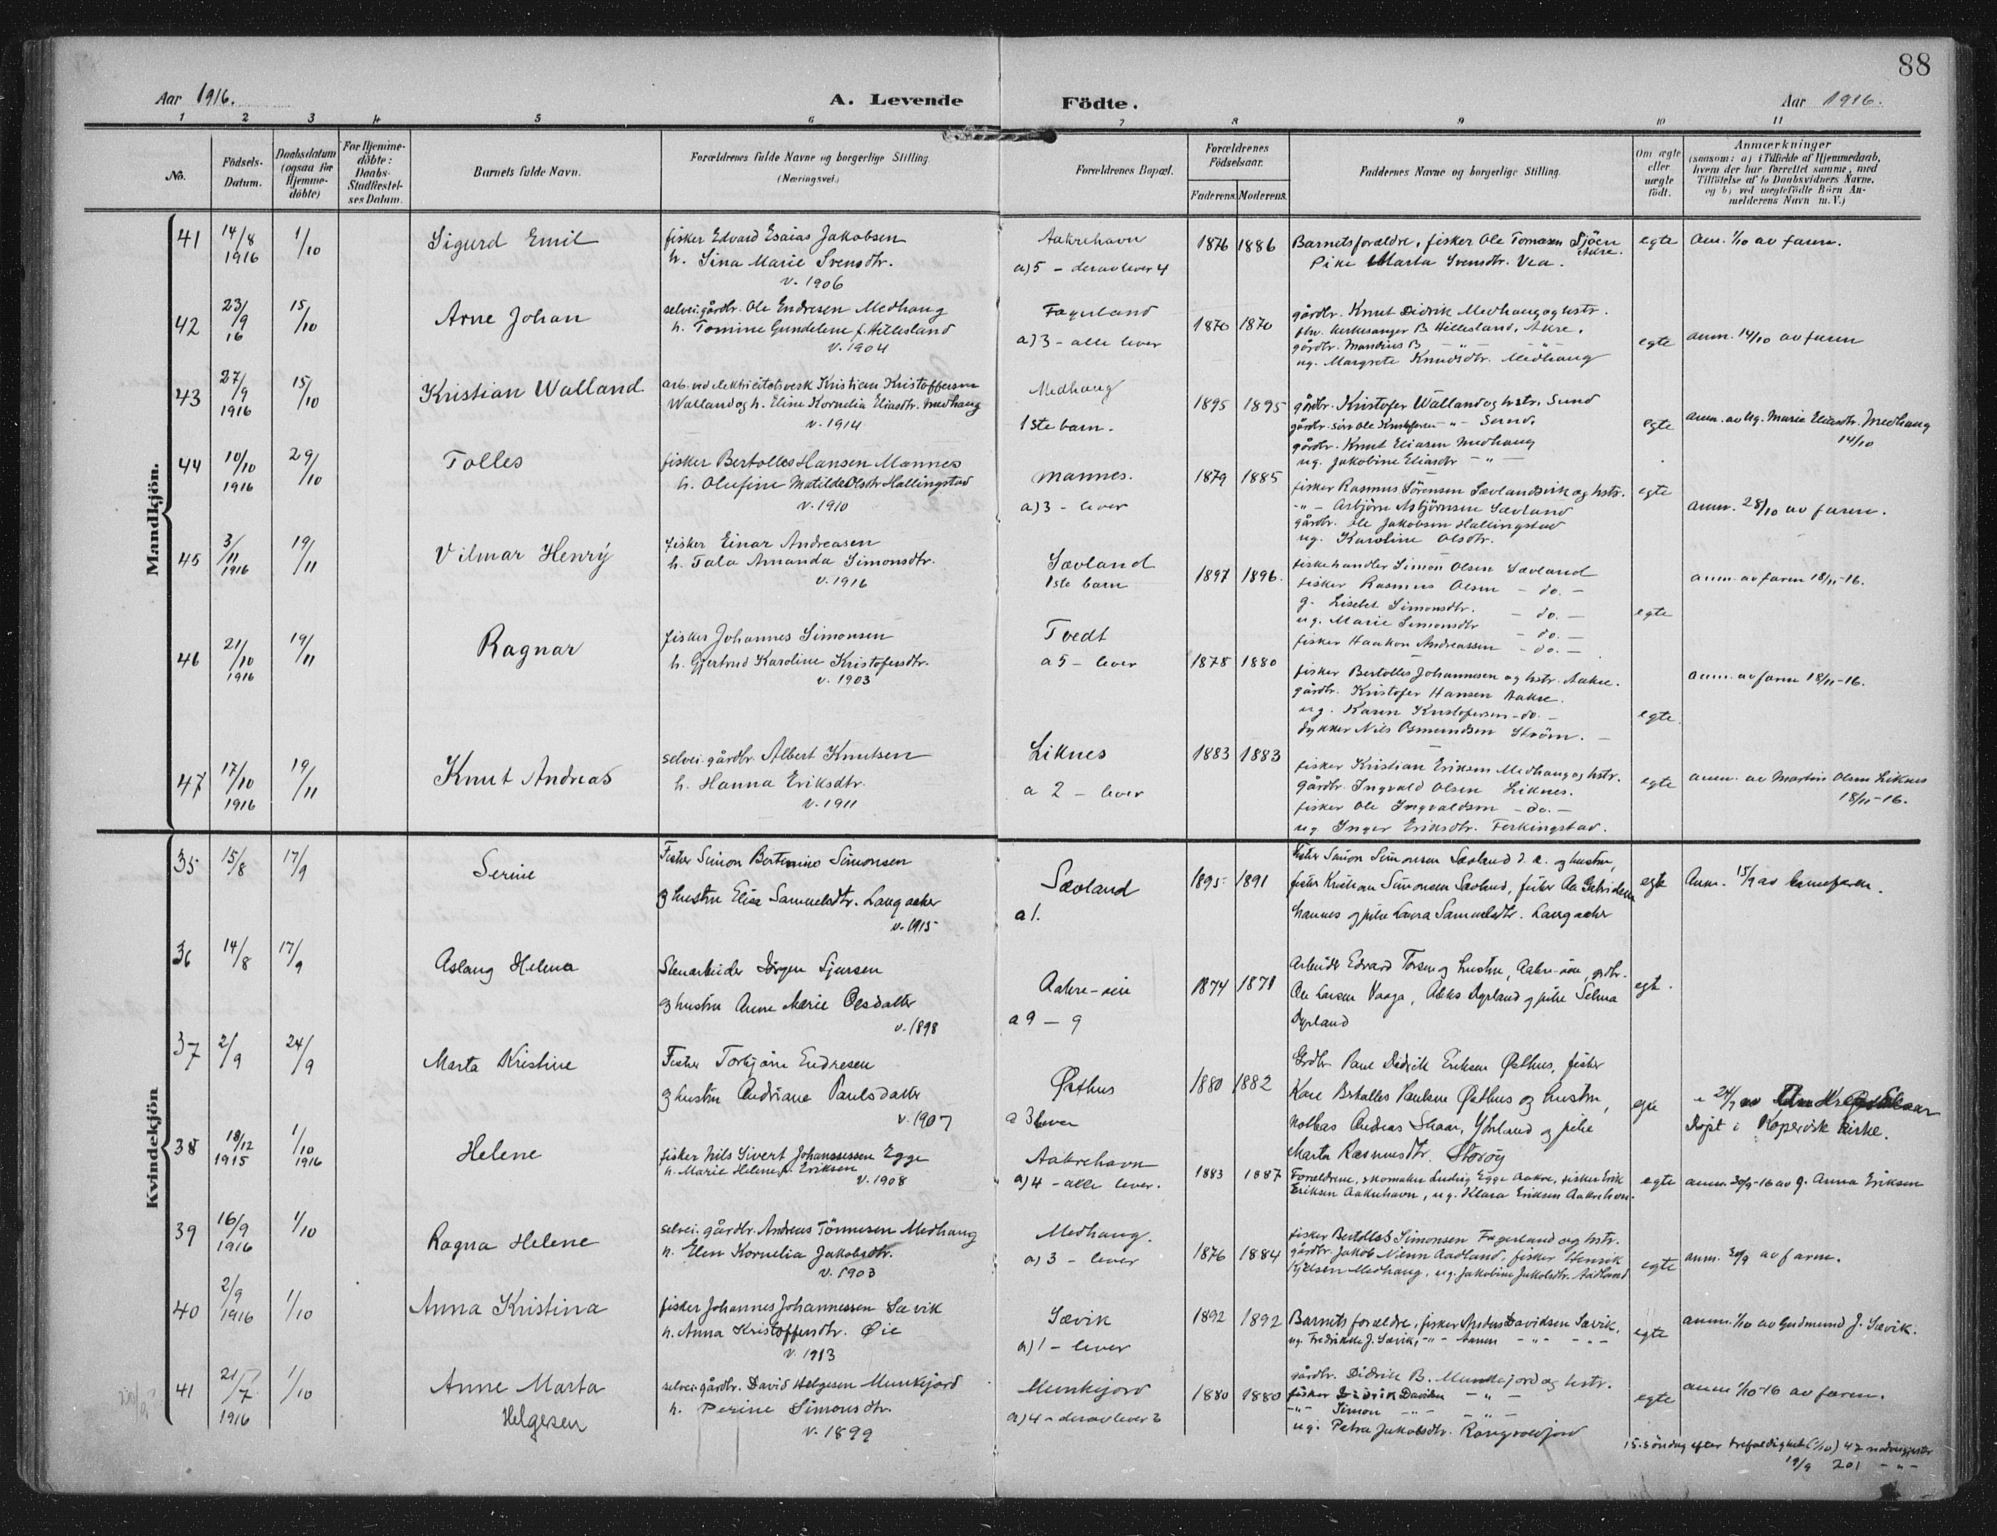 88
Aar 1916.
A. Levende
Födte.
Aar 1916.
1 2 3 4 5 6 7 8 9 10 11
No.
Födsels-Datum.
Daabsdatum (ogsaa for Hjemme-döbte)
For Hjemme-döbte: Daabs-Stadfæstel-ses Datum.
Barnets fulde Navn.
Forældrenes fulde Navne og borgerlige Stilling. (Næringsvei.)
Forældrenes Bopæl.
Forældrenes Födselsaar.
Faderens. Moderens.
Faddernes Navne og borgerlige Stilling.
Om ægte eller uægte födt.
Anmærkninger
(saasom: a) i Tilfælde af Hjemmedaab, hvem der har forrettet samme, med Tilföielse af to Daabsvidners Navne, og b) ved uægtefödte Börn An-melderens Navn m. V.)
Mandkjön.
41 14/8 1916 1/10 Sigurd Emil
fisker Edvard Esaias Jakobsen
h. Sina Marie Svensdtr.
v. 1906
Aakrehavn
a) 5 - derav lever 4
1876 1886
Barnets forældre, fisker Ole Tomasen Sjöen Aakre.
Pike Marta Svensdtr. Vea.
egte
Anm. 1/10 av faren.
42 23/9 16 15/10 Arne Johan
selvei. gårdbr. Ole Endresen Medhaug
h. Tomine Gundelene f. Hillesland
v. 1904
Fagerland
a) 3 - alle lever
1870 1870
gårdbr. Knut Didrik Medhaug og hstr.
fhv. kirkesanger B. Hillesland, Aakre.
gårdbr. Mandius B - " - - " -
ug. Margrete Knudsdtr. Medhaug
egte
anm. 14/10 av faren
43 27/9 1916 15/10 Kristian Walland
arb. ved elektricitetsverk Kristian Kristoffersen
Walland og h. Eline Kornelia Eliasdtr. Medhaug
v. 1914
Medhaug
1ste barn.
1895 1895
gårdbr. Kristofer Walland og hstr. Sund
gårdbr. søn Ole Kristofersen - " - Sund.
gårdbr. Knut Eliasen Medhaug
ug. Jakobine Eliasdtr - " -
egte
anm. av ug. Marie Eliasdtr. Medhaug
14/10
44 10/10 1916 29/10 Tolles
fisker Bertolles Hansen Mannes
h. Olufine Matilde Olsdtr Hallingstad
v. 1910
Mannes.
a) 3 - lever
1879 1885
fisker Rasmus Sørensen Sævlandsvik og hstr.
- " - Asbjørn Asbjørnsen Sævland
gårdbr. Ole Jakobsen Hallingstad
ug. Karoline Olsdtr.
egte
anm. 28/10 av faren.
45 3/11 1916 19/11 Vilmar Henry
fisker Einar Andreasen
h. Tala Amanda Simonsdtr.
v. 1916
Sævland
1ste barn
1897 1896.
fiskehandler Simon Olsen Sævland
fisker Rasmus Olsen - do. -
g. Lisebet Simonsdtr. - do. -
ug. Marie Simonsdtr - do. -
fisker Haakon Andreassen - do. -
egte
anm. av faren 18/11-16.
46 21/10 1916 19/11 Ragnar
fisker Johannes Simonsen
h. Gjertrud Karoline Kristofersdtr.
v. 1903
Tvedt
a 5 - lever
1878 1880
fisker Bertolles Johannesen og hstr. Aakre.
gårdbr. Kristofer Hansen Aakre.
ug. Karen Kristofersen - do. -
dykker Nils Osmundsen Strøm. -
egte.
anm. av faren 18/11-16.
47 17/10 1916 19/11 Knut Andreas
selvei. gårdbr. Albert Knutsen
h. Hanna Eriksdtr.
v. 1911
Liknes
a 2 - lever
1883 1883
fisker Kristian Eriksen Medhaug og hstr.
gårdbr. Ingvald Olsen Liknes.
fisker Ole Ingvaldsen - do. -
ug Inger Eriksdtr. Ferkingstad.
egte
anm. av Martin Olsen Liknes
18/11-16.
Kvindekjön
35 15/8 17/9 Serine
Fisker Simon Simonsen
og hustru Elisa Samuelsdtr. Langaaker
v. 1915
Sævland
a 1.
1895 1891
fisker Simon Simonsen Sævland d. æ. og hustru,
fisker Kristian Simonsen Sævland, fisker
Mannes og pike Laura Samuelsdtr. Langaaker
egte
Anm. 15/9 av barnefaren.
36 14/8 17/9 Aslaug Helena
Stenarbeider Jørgen Sjursen
og hustru Anne Marie Olsdatter
v. 1898
Aakre-øien
a 9 - 9
1874 1871
Arbeider Edvard Torsen og hustru, Aakre-øien, grdbr.
Ole Larsen Vaaga, Dyrland og pike Selma
Dyrland
egt.
37 2/9 24/9 Marta Kristine
Fisker Torbjørn Endresen
og hustru Andriane Paulsdatter
v. 1907
Østhus
a 3 lever
1880 1882
Grdbr. Didrik Eriksen Østhus, fisker
Bertolles Paulsen Østhus og hustru,
Andreas Skaar, Yrland og pike
Marta Rasmusdtr. Storøy
egte
Døpt i Kopervik kirke.
38 18/12 1915 1/10 1916 Helene
fisker Nils Sivert Johannessen Egge
h. Marie Helene f. Eriksen
v. 1908
Aakrehavn
a) 4 - alle lever.
1883 1887
Forældrene, skomaker Ludvig Egge Aakre, fisker Erik
Eriksen Aakrehavn, ug. Klara Eriksen Aakrehavn.
egte
anm. 30/9-16 av g. Anna Eriksen
39 16/9 1916 1/10 Ragna Helene
selvei. gårdbr. Andreas Tönnesen Medhaug
h. Elen Kornelia Jakobsdtr.
v. 1903
Medhaug.
a) 3 - lever
1876 1884
fisker Bertolles Simonsen Fagerland og hstr.
gårdbr. Jakob Aadland, fisker Henrik
Medhaug, ug. Jakobine Jakobsdtr. Aadland
egte
anm. 30/9 av faren.
40 2/9 1916 1/10 Anna Kristina
fisker Johannes Johannessen Sævik
h. Anna Kristoffersdtr. Øie
v. 1913
Sævik
a) 1 - lever
1892 1892
Barnets forældre, fisker Davidsen Sævik,
ug. Fredrikke J. Sævik, - " -
egte
anm. 1/10 av Gudmund J. Sævik.
41 21/7 1916 1/10 Anne Marta
Helgesen
selvei. gårdbr. David Helgesen Munkejord
h. Perine Simonsdtr.
v. 1899
Munkejord
a) 4 - derav lever 2
1880 1880
gårdbr. Didrik B. Munkejord og hstr.
fisker Didrik Davidsen - " -
- " - Simon - " - - " -
ug. Petra Jakobsdtr. Rangvoldjord
egte
anm 1/10-16 av faren.
15. söndag efter trefoldighet (1/10) 47 nadvergjester
17/9 201 - " -